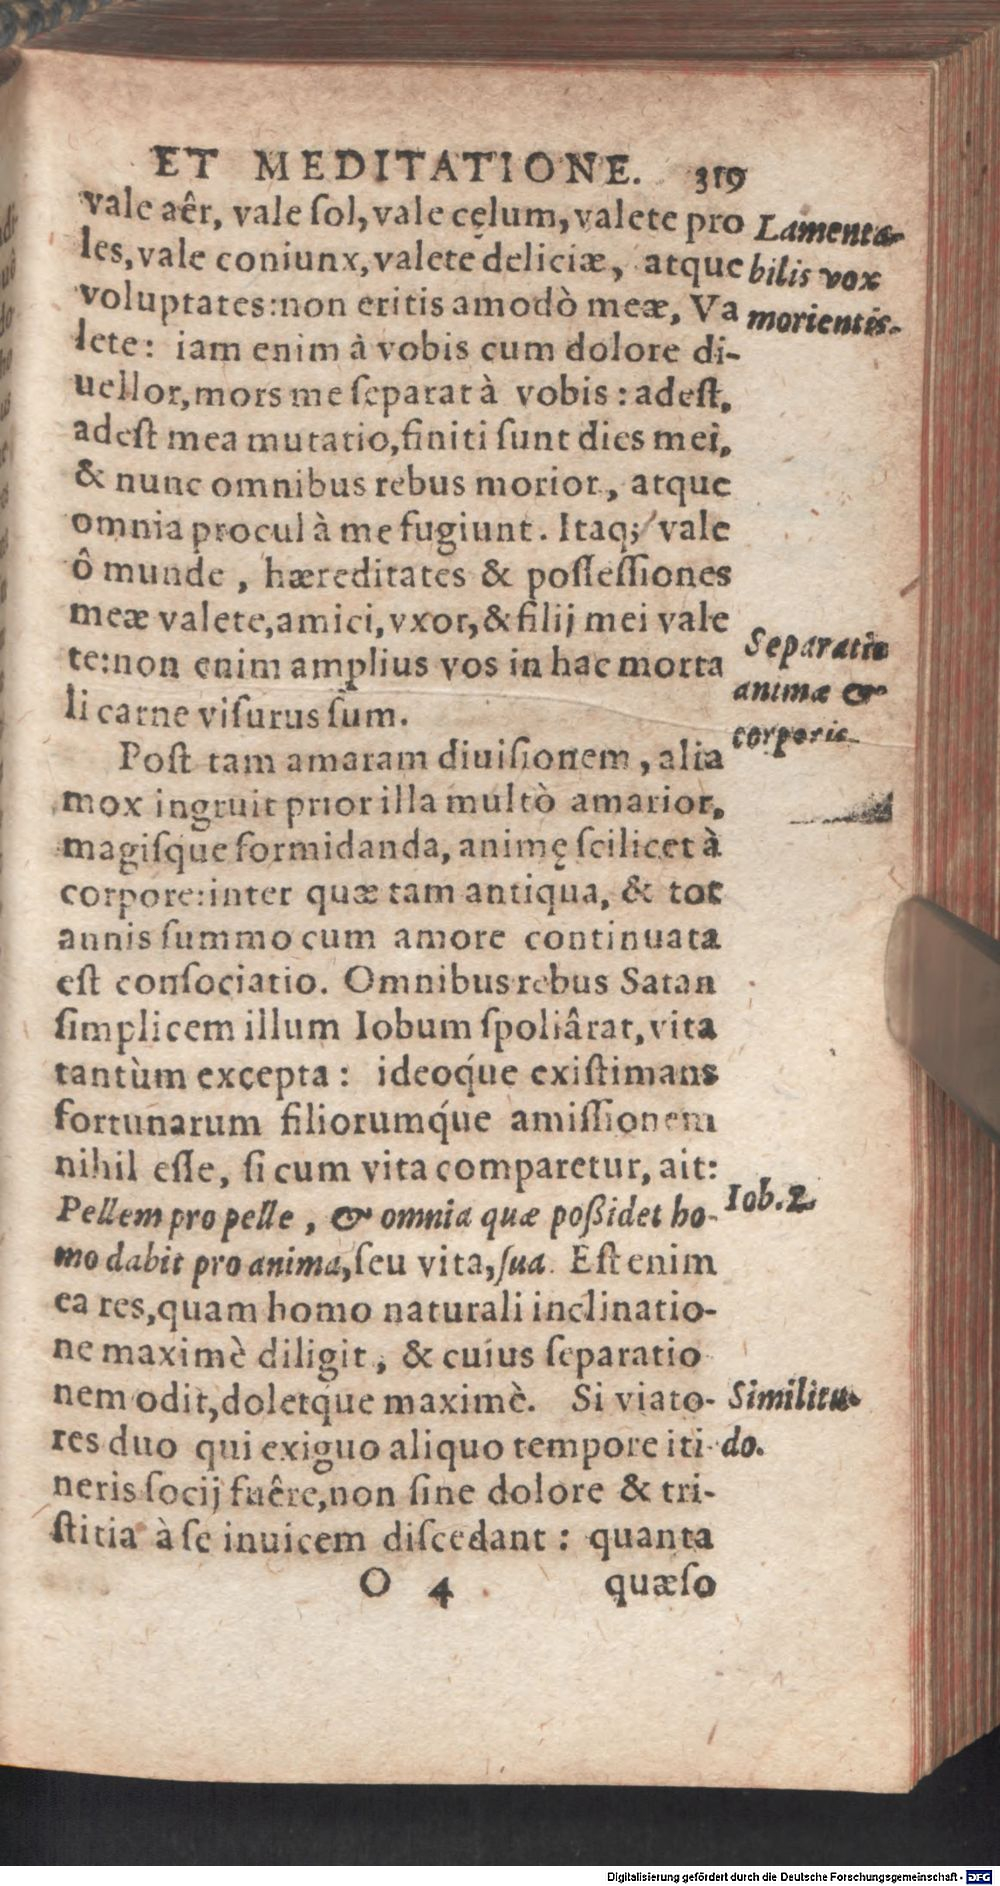 ET MEDITATIONE. 319
vale aêr, vale ſol, vale cęlum, valete pro
les, vale coniunx, valete deliciæ, atque
voluptates: non eritis amodò meæ, Va
lete: iam enim à vobis cum dolore di-
uellor, mors me ſeparat à vobis: adeſt,
adeſt mea mutatio, finiti ſunt dies mei,
& nunc omnibus rebus morior, atque
omnia procul à me fugiunt. Itaq; vale
ô munde, hæreditates & poſſeſſiones
meæ valete, amici, vxor, & filij mei vale
te: non enim amplius vos in hac morta
li carne viſurus ſum.
Lamenta-
bilis vox
morientis.
Separatio
animæ &
corporis
Poſt tam amaram diuiſionem, alia
mox ingruit prior illa multò amarior,
magiſque formidanda, animę ſcilicet à
corpore: inter quæ tam antiqua, & tot
annis ſummo cum amore continuata
eſt conſociatio. Omnibus rebus Satan
ſimplicem illum Iobum ſpoliârat, vita
tantùm excepta: ideoq́ue exiſtimans
fortunarum filiorumq́ue amiſſionem
nihil eſſe, ſi cum vita comparetur, ait:
Pellem pro pelle, & omnia quæ poßidet ho-
mo dabit pro anima, ſeu vita, ſua. Eſt enim
ea res, quam homo naturali inclinatio-
ne maximè diligit, & cuius ſeparatio
nem odit, doletque maximè. Si viato-
res duo qui exiguo aliquo tempore iti-
neris ſocij fuêre, non ſine dolore & tri-
ſtitia à ſe inuicem diſcedant: quanta
Iob. 2.
Similitu-
do.
O 4 quæſo
Digitalisierung gefördert durch die Deutsche Forschungsgemeinschaft - DFG